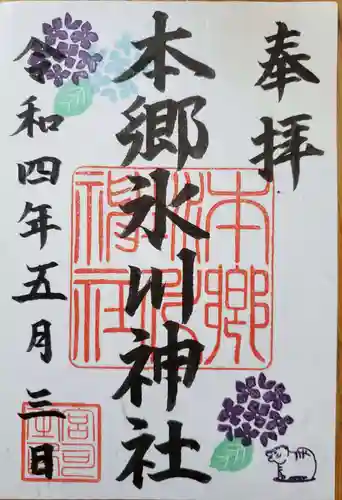 奉拝
本郷氷川神社
令和四年五月三日
本郷氷川神社
宮司之印